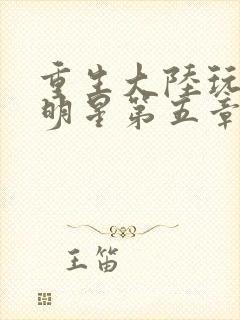 重生大陸玩
明星第五章
王笛